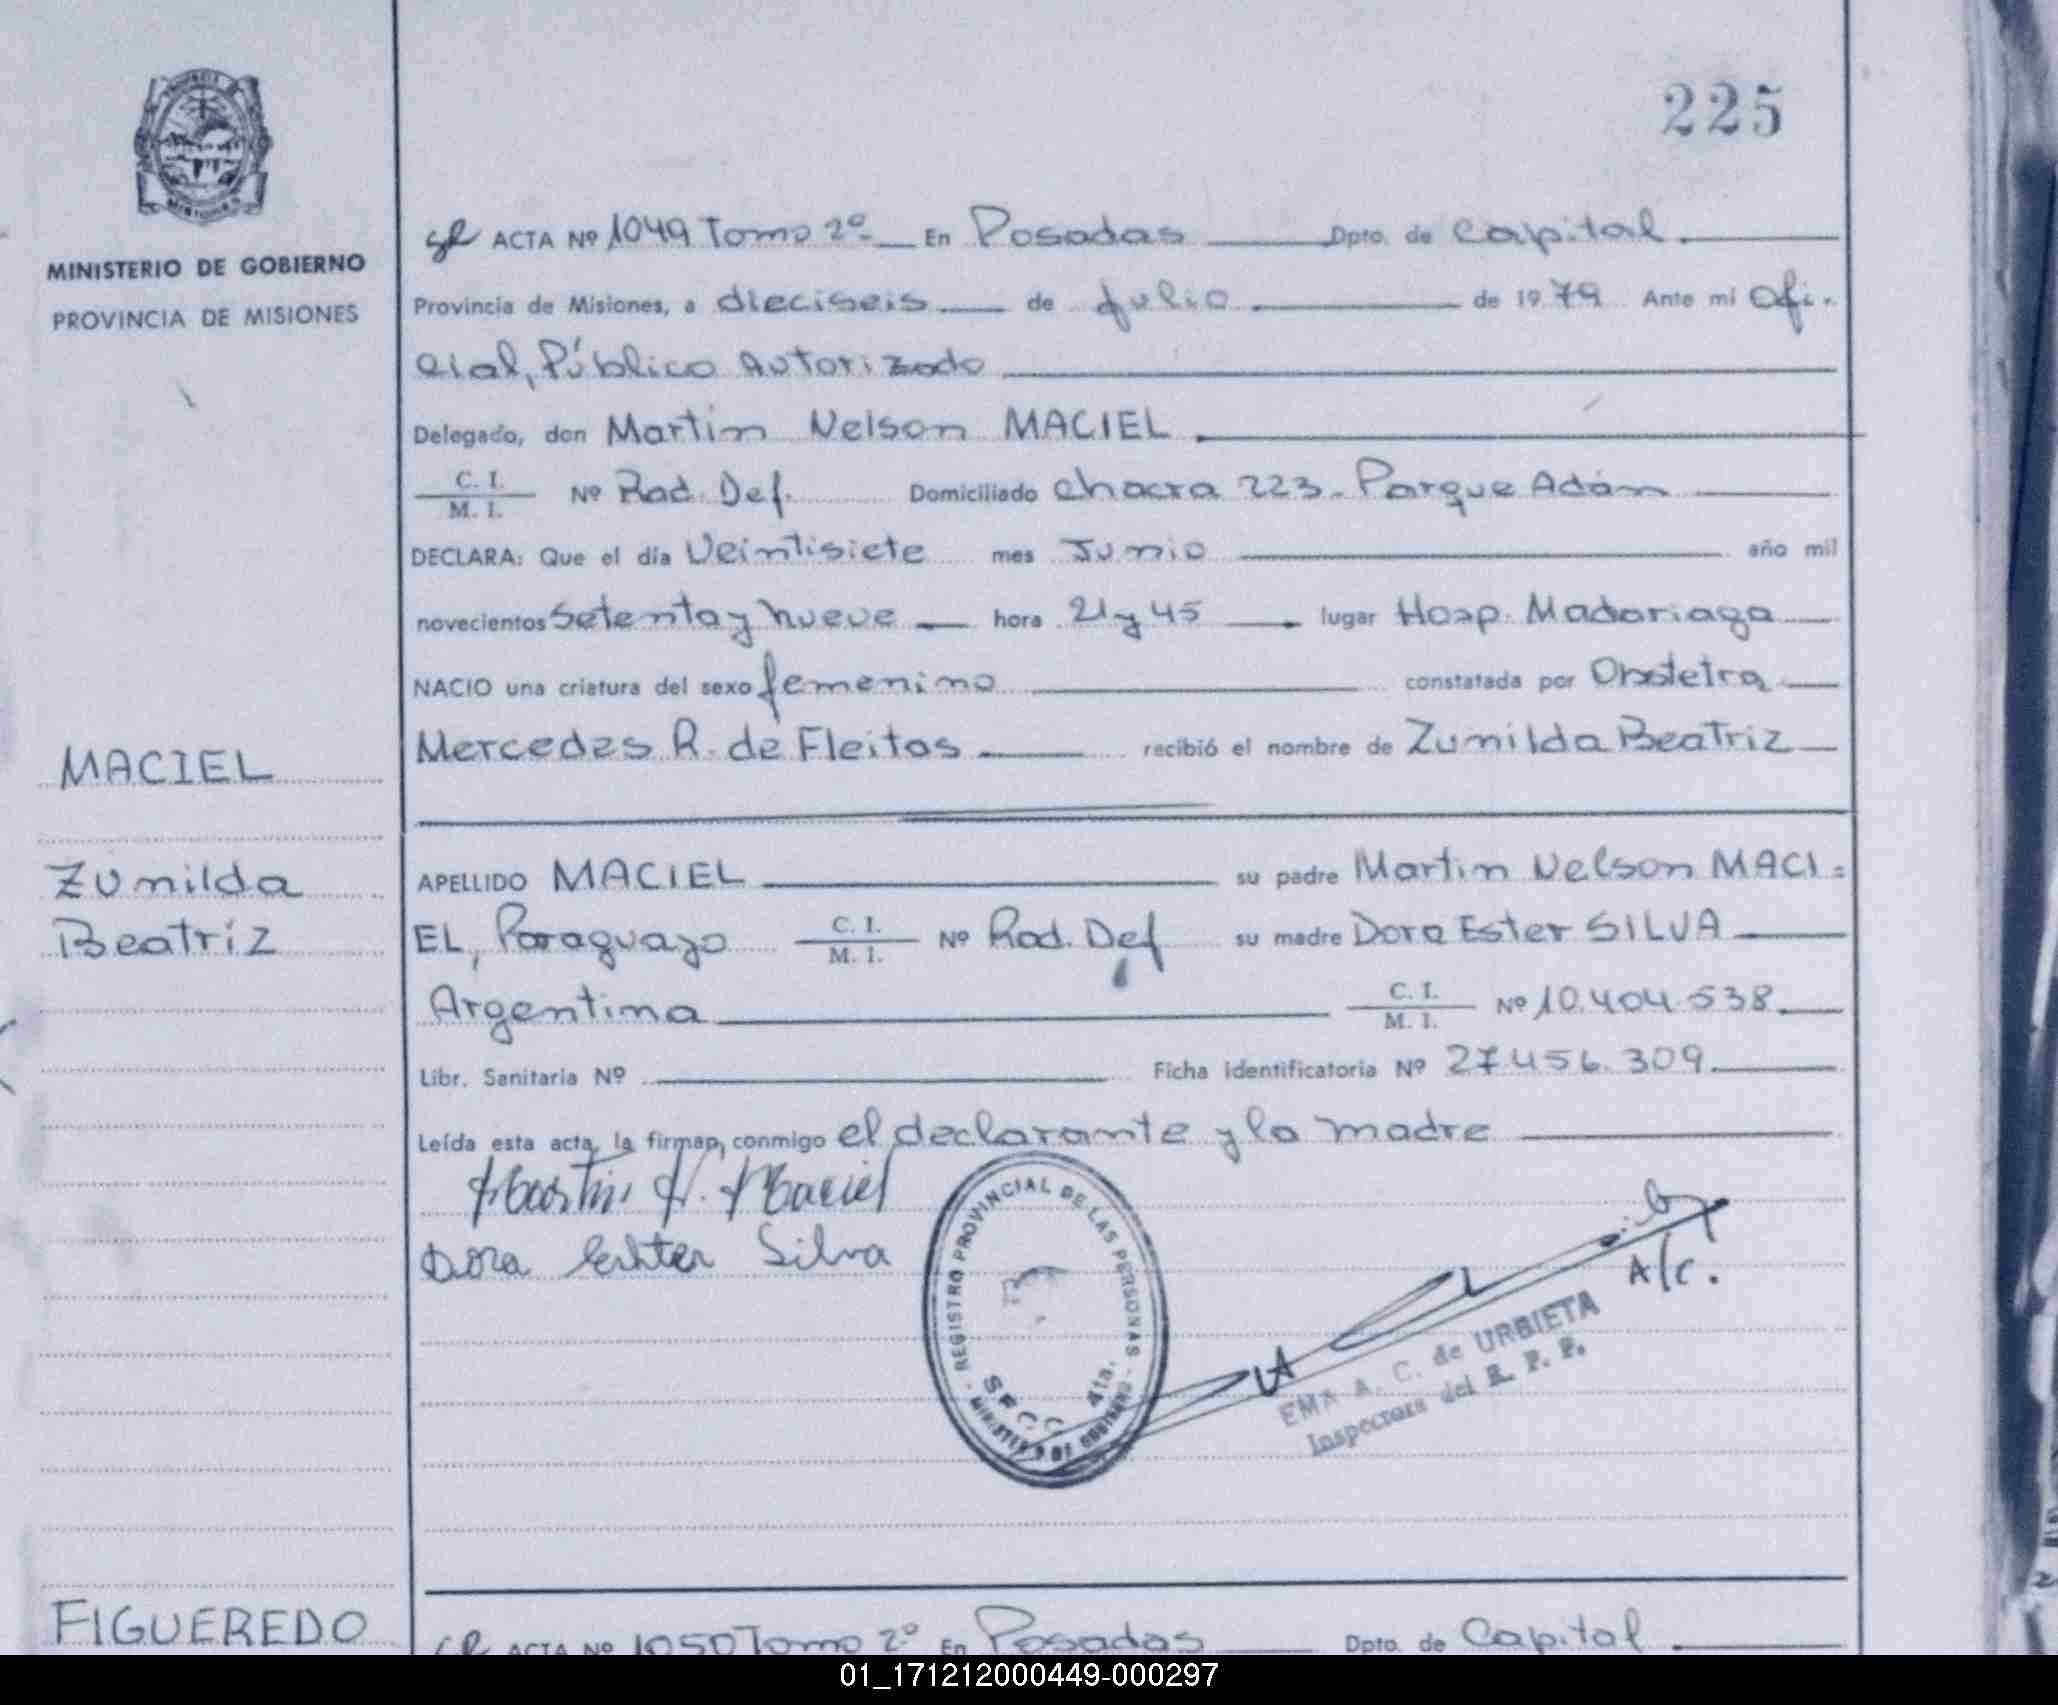 225
MINISTERIO DE GOBIERNO
PROVINCIA DE MISIONES
ACTA Nº 1049 Tomo 2º En Posadas Dpto. de Capital.
Provincia de Misiones, a dieciseis de Julio de 1979 Ante mi Ofi-
cial, Público Autorizado
Delegado, don Martin Nelson MACIEL
C. I.
M. I. Nº Rad. Def. Domiciliado Chacra 223. Parque Adám
DECLARA: Que el día Veintisiete mes Junio año mil
novecientos Setenta y nueve hora 21 y 45 lugar Hosp. Madariaga
NACIO una criatura del sexo femenino constatada por Obstetra
Mercedes R. de Fleitas recibió el nombre de Zunilda Beatriz
MACIEL
Zunilda
Beatriz
APELLIDO MACIEL su padre Martin Nelson MACI=
EL, Paraguayo C. I. M. I. Nº Rad. Def su madre Dora Ester SILVA
Argentina C. I. M. I. Nº 10.404.538
Libr. Sanitaria Nº Ficha identificatoria Nº 27.456.309
Leída esta acta, la firman, conmigo el declarante y la madre
Martin N. Maciel
Dora Ester Silva
REGISTRO PROVINCIAL DE LAS PERSONAS
MINISTERIO DE GOBIERNO
4ta.
A/C.
EMA A. C. de URBIETA
Inspectora del R. P. P.
FIGUEREDO
ACTA Nº 1050 Tomo 2º En Posadas Dpto. de Capital
01_171212000449-000297